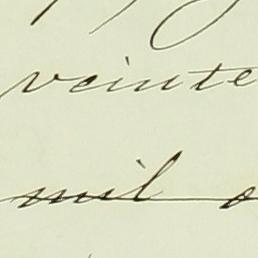 veinte
mil